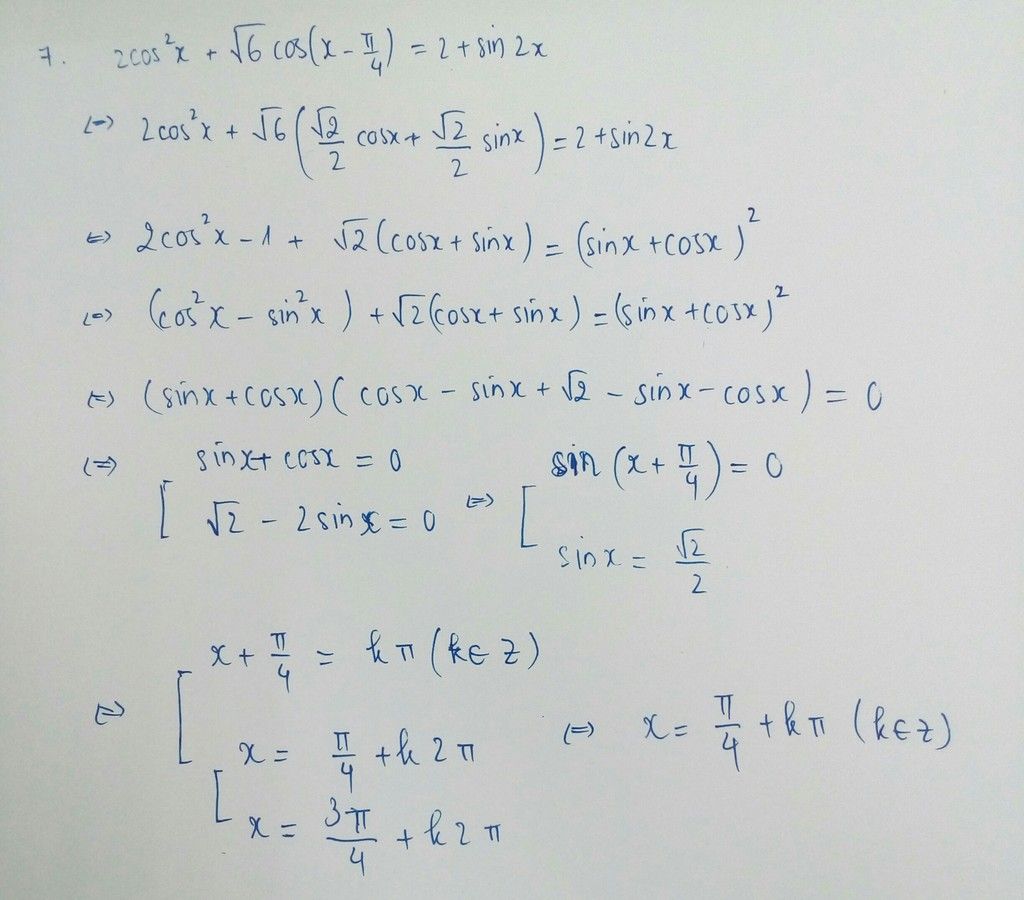 7. 2cos²x + √6 cos(x - π/4) = 2 + sin 2x
(=) 2cos²x + √6 (√2/2 cosx + √2/2 sinx) = 2 + sin2x
(=) 2cos²x - 1 + √2 (cosx + sinx) = (sinx + cosx)²
(=) (cos²x - sin²x) + √2 (cosx + sinx) = (sinx + cosx)²
(=) (sinx + cosx)(cosx - sinx + √2 - sinx - cosx) = 0
(=) [ sinx + cosx = 0 (=) [ sin(x + π/4) = 0
√2 - 2sinx = 0 sinx = √2/2
(=) [ x + π/4 = kπ (k∈Z)
x = π/4 + k2π (=) x = π/4 + kπ (k∈Z)
[ x = 3π/4 + k2π